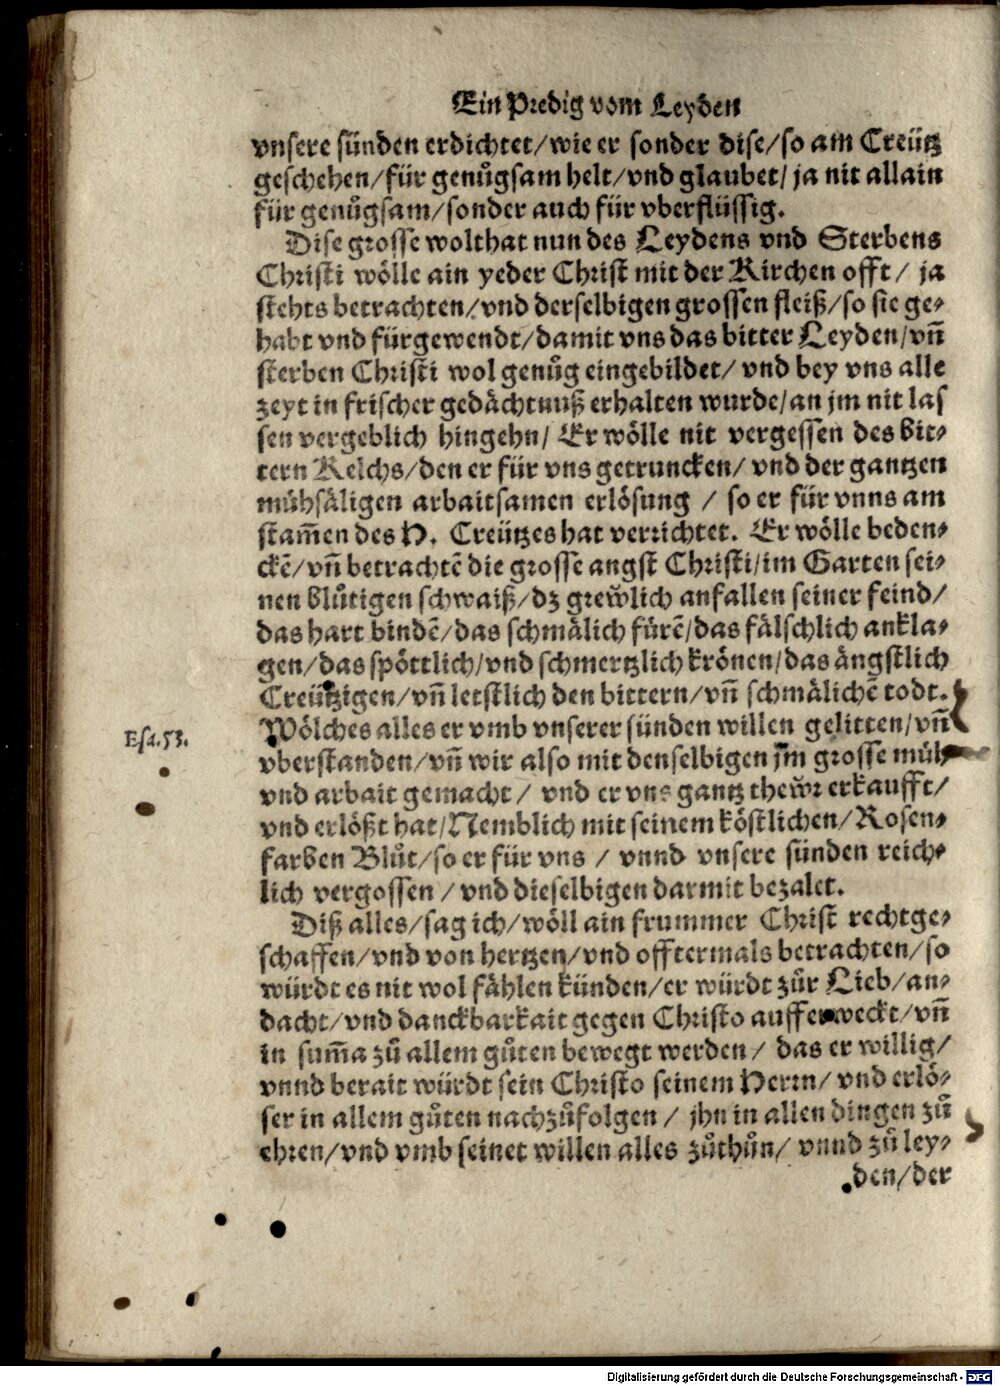 Ein Predig vom Leyden
vnsere sünden erdichtet/wie er sonder dise/so am Creütz
geschehen/für genůgsam helt/vnd glaubet/ja nit allain
für genůgsam/sonder auch für vberflüssig.
Dise grosse wolthat nun des Leydens vnd Sterbens
Christi wölle ain yeder Christ mit der Kirchen offt/ ja
stehts betrachten/vnd derselbigen grossen fleiß/so sie ge-
habt vnd fürgewendt/damit vns das bitter Leyden/vñ
sterben Christi wol genůg eingebildet/ vnd bey vns alle
zeyt in frischer gedächtnuß erhalten wurde/an jm nit las
sen vergeblich hingehn/ Er wölle nit vergessen des bit-
tern Kelchs/den er für vns getruncken/ vnd der gantzen
mühsäligen arbaitsamen erlösung / so er für vnns am
stam̃en des H. Creützes hat verrichtet. Er wölle beden-
ckẽ/vñ betrachtẽ die grosse angst Christi/im Garten sei-
nen blůtigen schwaiß/dz grewlich anfallen seiner feind/
das hart bindẽ/das schmälich fürẽ/das fälschlich ankla-
gen/das spöttlich/vnd schmertzlich krönen/das ängstlich
Creützigen/vñ letstlich den bittern/vñ schmälichẽ todt.
Wölches alles er vmb vnserer sünden willen gelitten/vñ
Esa.53.
vberstanden/vñ wir also mit denselbigen jm̃ grosse müh-
vnd arbait gemacht/ vnd er vns gantz thewr erkaufft/
vnd erlößt hat/Nemblich mit seinem köstlichen/Rosen-
farben Blůt/so er für vns / vnnd vnsere sünden reich-
lich vergossen / vnd dieselbigen darmit bezalet.
Diß alles/sag ich/wöll ain frummer Christ rechtge-
schaffen/vnd von hertzen/vnd offtermals betrachten/so
würdt es nit wol fählen künden/er würdt zůr Lieb/an-
dacht/vnd danckbarkait gegen Christo aufferweckt/vñ
in sum̃a zů allem gůten bewegt werden/ das er willig/
vnnd berait würdt sein Christo seinem Herrn/ vnd erlö-
ser in allem gůten nachzůfolgen / jhn in allen dingen zů
ehren/vnd vmb seinet willen alles zůthůn/ vnnd zů ley-
den/der
Digitalisierung gefördert durch die Deutsche Forschungsgemeinschaft - DFG